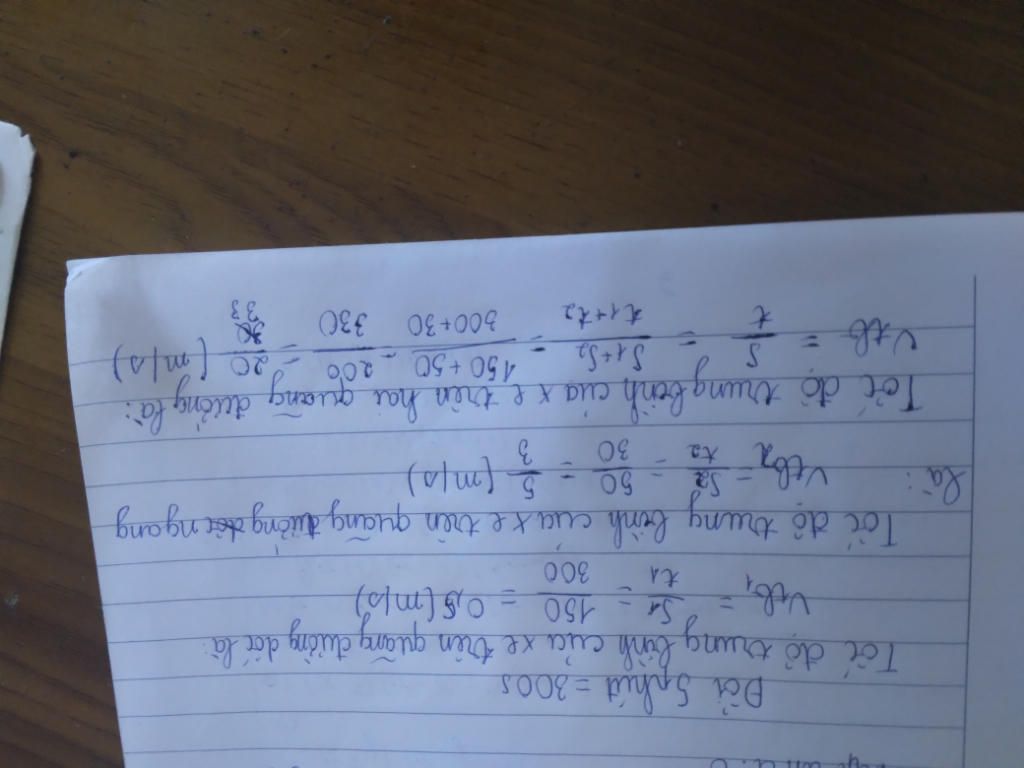 Đổi 5 phút = 300s
Tốc độ trung bình của xe trên quãng đường dốc là:
Vtb1 = S1/t1 = 150/300 = 0,5 (m/s)
Tốc độ trung bình của xe trên quãng đường ngang
là: Vtb2 = S2/t2 = 50/30 = 5/3 (m/s)
Tốc độ trung bình của xe trên hai quãng đường là:
Vtb = S/t = S1+S2/t1+t2 = 150+50/300+30 = 200/330 = 20/33 (m/s)